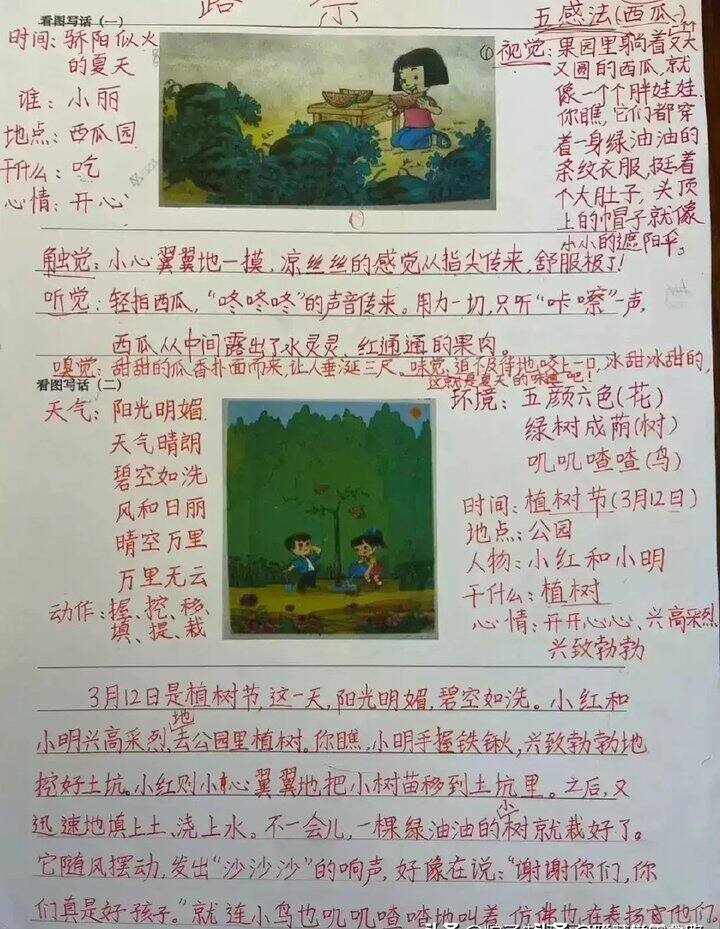 看图写话（一）
五感法(西瓜)
时间：骄阳似火
的夏天
谁：小丽
地点：西瓜园
干什么：吃
心情：开心
①视觉：果园里躺着又大
又圆的西瓜,就
像一个个胖娃娃.
你瞧,它们都穿
着一身绿油油的
条纹衣服,挺着
个大肚子,头顶
上的帽子就像
小小的遮阳伞。
触觉：小心翼翼地一摸,凉丝丝的感觉从指尖传来,舒服极了!
听觉：轻拍西瓜,“咚咚咚”的声音传来。用力一切,只听“咔嚓”一声,
西瓜从中间露出了水灵灵、红通通的果肉。
嗅觉：甜甜的瓜香扑面而来,让人垂涎三尺。味觉：迫不及待地咬上一口,冰甜冰甜的,
这就是夏天的味道吧!
看图写话（二）
天气：阳光明媚
天气晴朗
碧空如洗
风和日丽
晴空万里
万里无云
动作：握、挖、移、
填、提、栽
环境：五颜六色(花)
绿树成荫(树)
叽叽喳喳(鸟)
时间：植树节(3月12日)
地点：公园
人物：小红和小明
干什么：植树
心情：开开心心、兴高采烈
兴致勃勃
3月12日是植树节,这一天,阳光明媚,碧空如洗。小红和
小明兴高采烈地去公园里植树。你瞧,小明手握铁锹,兴致勃勃地
挖好土坑。小红则小心翼翼地,把小树苗移到土坑里。之后,又
迅速地填上土、浇上水。不一会儿,一棵绿油油的小树就栽好了。
它随风摆动,发出“沙沙沙”的响声,好像在说：“谢谢你们,你
们真是好孩子。”就连小鸟也叽叽喳喳地叫着,仿佛也在表扬它们。